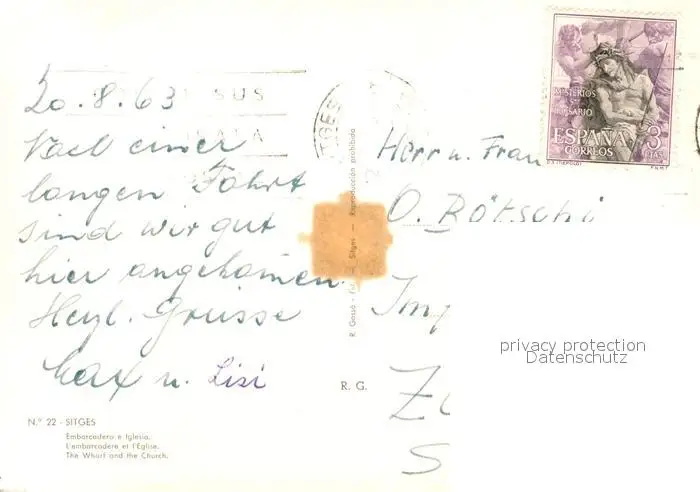 20.8.63
Nach einer
langen Fahrt
sind wir gut
hier angekommen.
Herzl. Grüsse
Max u. Lisi
N.º 22 - SITGES
Embarcadero e Iglesia.
L'embarcadère et l'Eglise.
The Wharf and the Church.
R. G.
Sitges - Reproducción prohibida
SUS
SITGES
MISTERIOS
STO
ROSARIO
ESPAÑA 3
CORREOS PTAS
F.N.M.T.
Herr u. Frau
O. Bötschi
privacy protection
Datenschutz